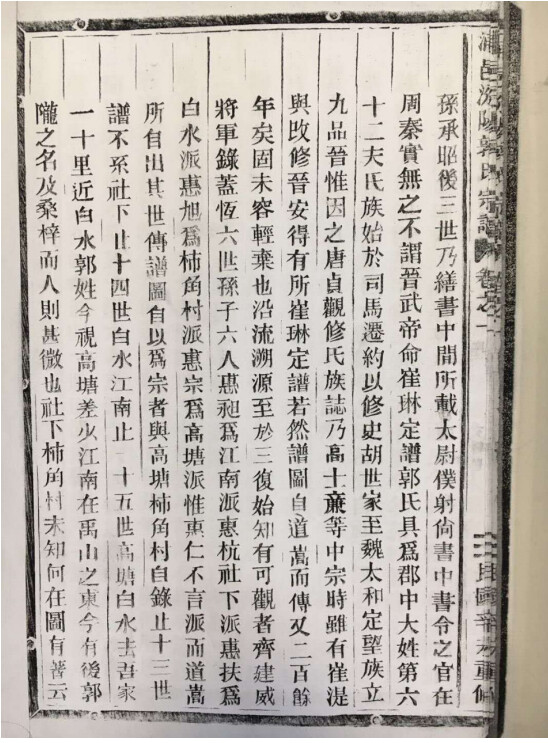 浦邑浟陽郭氏宗譜 卷之一
民國辛未重脩
孫承昭後三世乃繕書中間所載太尉僕射尙書中書令之官在
周秦實無之不謂晉武帝命崔琳定譜郭氏具爲郡中大姓第六
十二夫氏族始於司馬遷約以修史胡世家至魏太和定望族立
九品晉惟因之唐貞觀修氏族誌乃高士廉等中宗時雖有崔湜
與改修晉安得有所崔琳定譜若然譜圖自道嵩而傳又二百餘
年矣固未容輕棄也沿流溯源至於三復始知有可觀者齊建威
將軍錄蓋恆六世孫子六人惠昶爲江南派惠杭社下派惠扶爲
白水派惠旭爲柿角村派惠宗爲高塘派惟惠仁不言派而道嵩
所自出其世傳譜圖自以爲宗者與高塘柿角村自錄止十三世
譜不系社下止十四世白水江南止 十五世高塘白水去吾家
一十里近白水郭姓今視高塘差少江南在禹山之東今有後郭
隴之名及桑梓而人則甚微也社下柿角村未知何在圖有著云